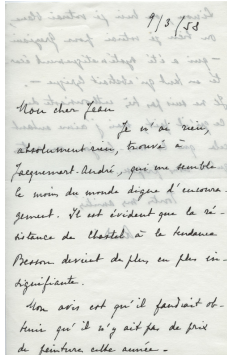 9/3/58
Mon cher Jean
Je n'ai rien,
absolument rien, trouvé à
Jacquemart-André, qui me semble
le moins du monde digne d'encoura-
gement. Il est évident que la ré-
sistance de Chastel à la tendance
Besson devient de plus en plus in-
signifiante.
Mon avis est qu'il faudrait ob-
tenir qu'il n'y ait pas de prix
de peinture cette année.